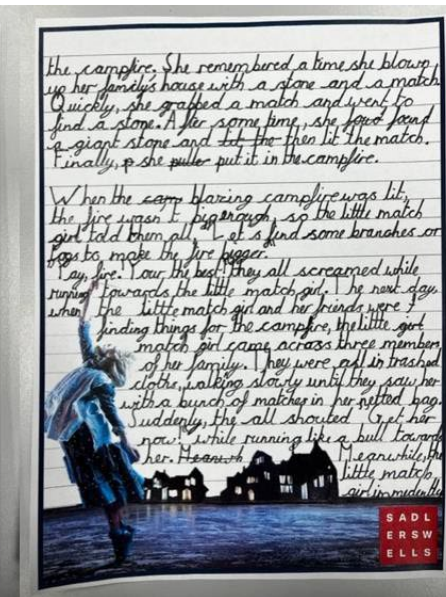 the campfire. She remembered a time she blown
up her family's house with a stone and a match
Quickly, she grabbed a match and went to
find a stone. After some time, she found
a giant stone and then lit the match.
Finally, she put it in the campfire.
When the blazing campfire was lit,
the fire wasn't big enough, so the little match
girl told them all, "Let's find some branches or
logs to make the fire bigger.
"Yay, fire! Your the best" they all screamed while
running towards the little match girl. The next day,
when the little match girl and her friends were
finding things for the campfire, the little girl
match girl came across three members
of her family. They were all in trashed
cloths, walking slowly until they saw her
with a bunch of matches in her netted bag.
Suddenly, the all shouted "Get her
now!" while running like a bull towards
her. Meanwhile, the
little match
girl immidently
SADL
ERSW
ELLS